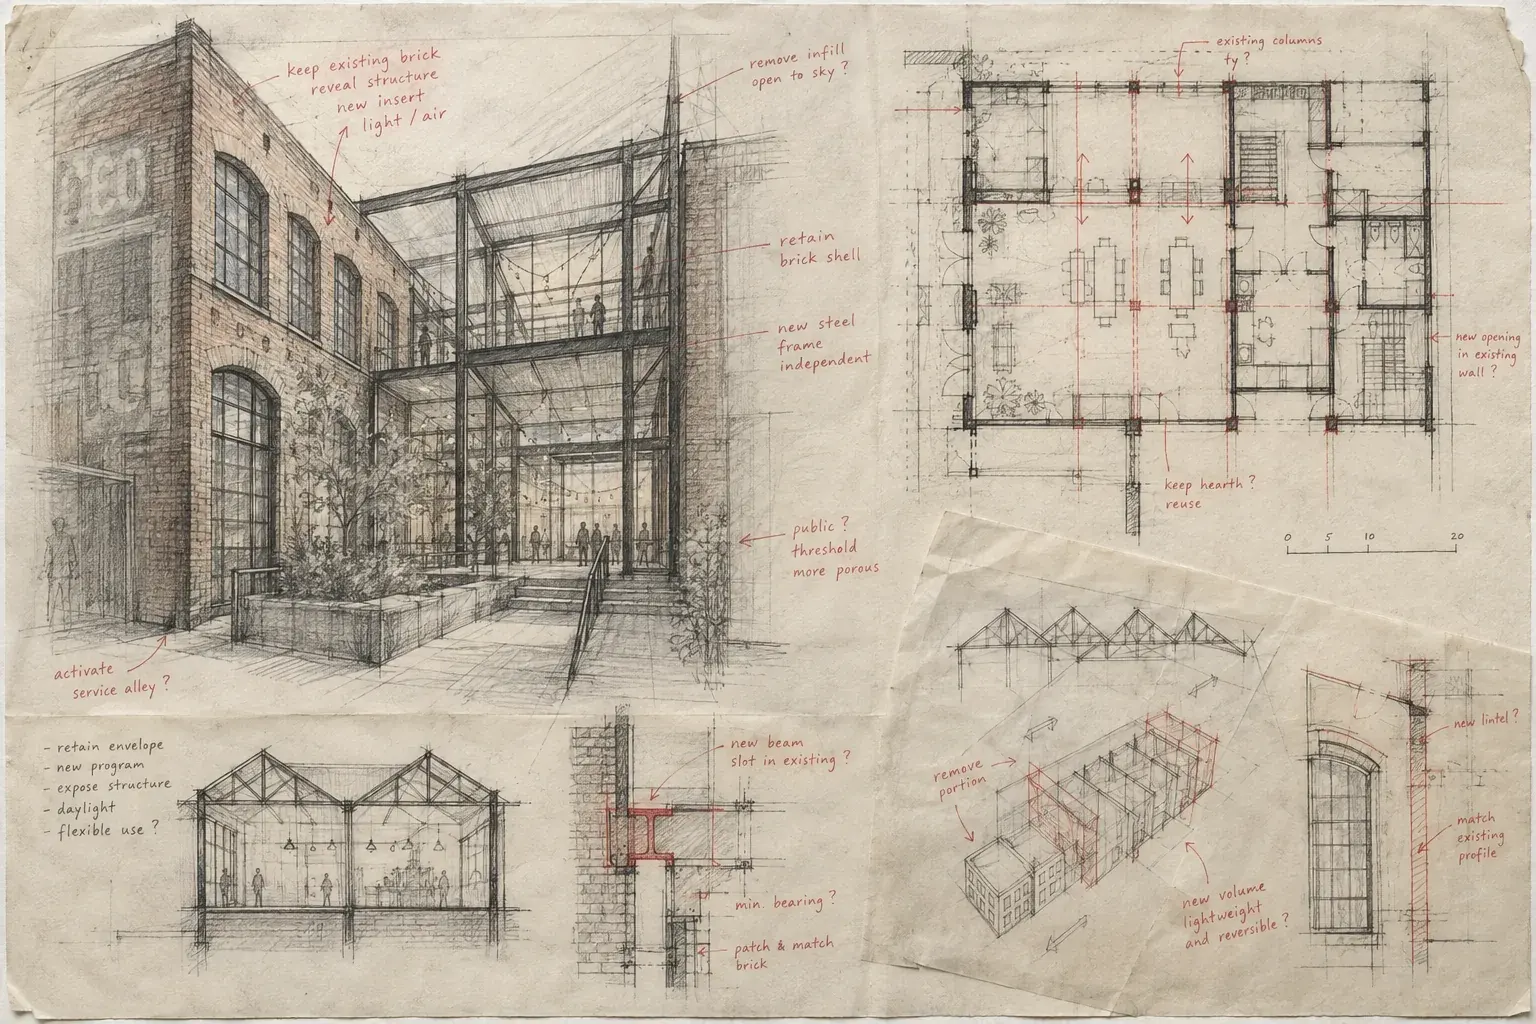 keep existing brick
reveal structure
new insert
light / air
remove infill
open to sky ?
retain
brick shell
new steel
frame
independent
public ?
threshold
more porous
activate
service alley ?
existing columns
ty ?
new opening
in existing
wall ?
keep hearth ?
reuse
0 5 10 20
- retain envelope
- new program
- expose structure
- daylight
- flexible use ?
new beam
slot in existing ?
min. bearing ?
patch & match
brick
remove
portion
new volume
lightweight
and reversible ?
new lintel ?
match
existing
profile